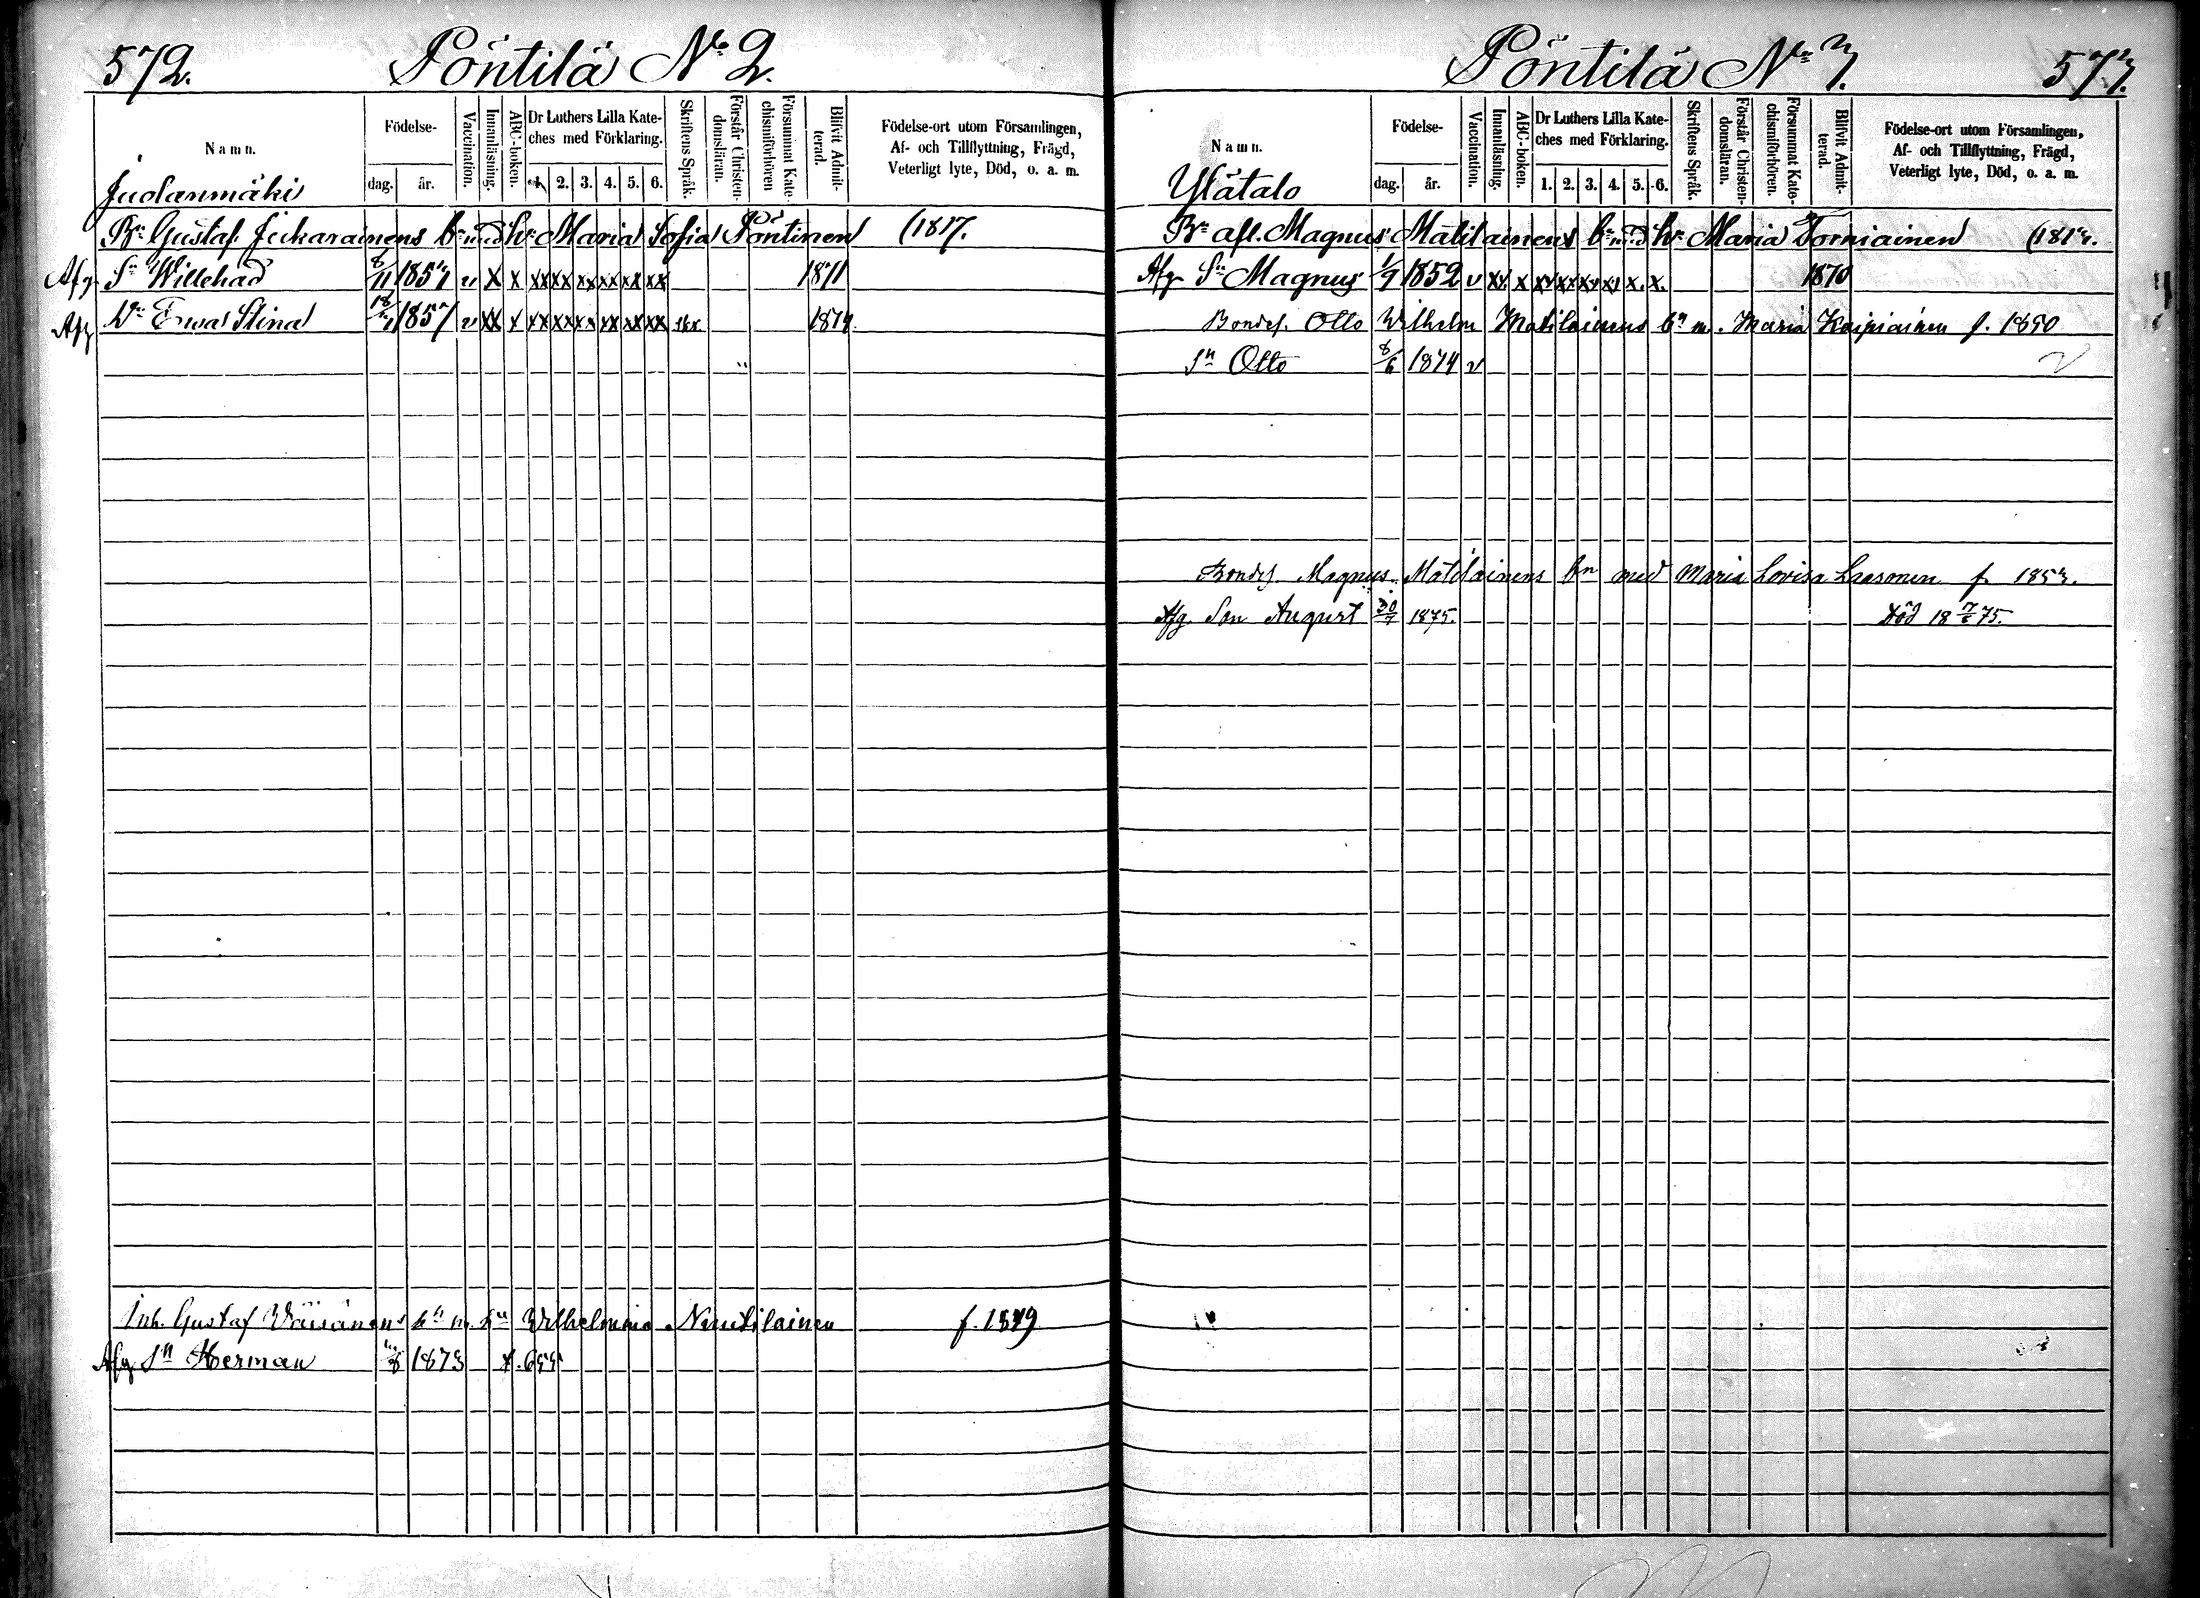 572. Pöntilä No 2.
Namn.
Födelse-
dag. år.
Vaccination.
Innanläsning.
ABC-boken.
Dr Luthers Lilla Kate-
ches med Förklaring.
1. 2. 3. 4. 5. 6.
Skriftens Språk.
Förstår Christen-
domsläran.
Försummat Kate-
chismiförhören
Blifvit Admit-
terad.
Födelse-ort utom Församlingen,
Af- och Tillflyttning, Frägd,
Veterligt lyte, Död, o. a. m.
Bn Gustaf bn med hu Maria Sofia Pöntinen (1817.
Afg. Sn Willehad 8/11 1853 v x x xx xx xx xx xx xx 1871
Afg Dn Ewa Stina 1857 v xx x xx xx xx xx xx xx 1874
Inh. Gustaf Wäisänens bn m. hu Wilhelmina Nuutilainen f. 1849
Afg Sn Herman 1873
Pöntilä No 3. 573.
Namn.
Ylätalo
Födelse-
dag. år.
Vaccination.
Innanläsning.
ABC-boken.
Dr Luthers Lilla Kate-
ches med Förklaring.
1. 2. 3. 4. 5. 6.
Skriftens Språk.
Förstår Christen-
domsläran.
Försummat Kate-
chismiförhören.
Blifvit Admit-
terad.
Födelse-ort utom Församlingen,
Af- och Tillflyttning, Frägd,
Veterligt lyte, Död, o. a. m.
Bn afl. Magnus Matilainens bn med hu Maria Torniainen (1813.
Afg Sn Magnus 1/9 1852 v xx x xx xx xx xx x. x. 1870
Bondes. Otto Wilhelm Matilainens bn m. Maria Kaipiainen f. 1850
Sn Otto 8/6 1874 v
Bondes. Magnus Matilainens bn med Maria Lovisa Laasonen f. 1853.
Afg Son August 1875. Död 18 7/6 75.